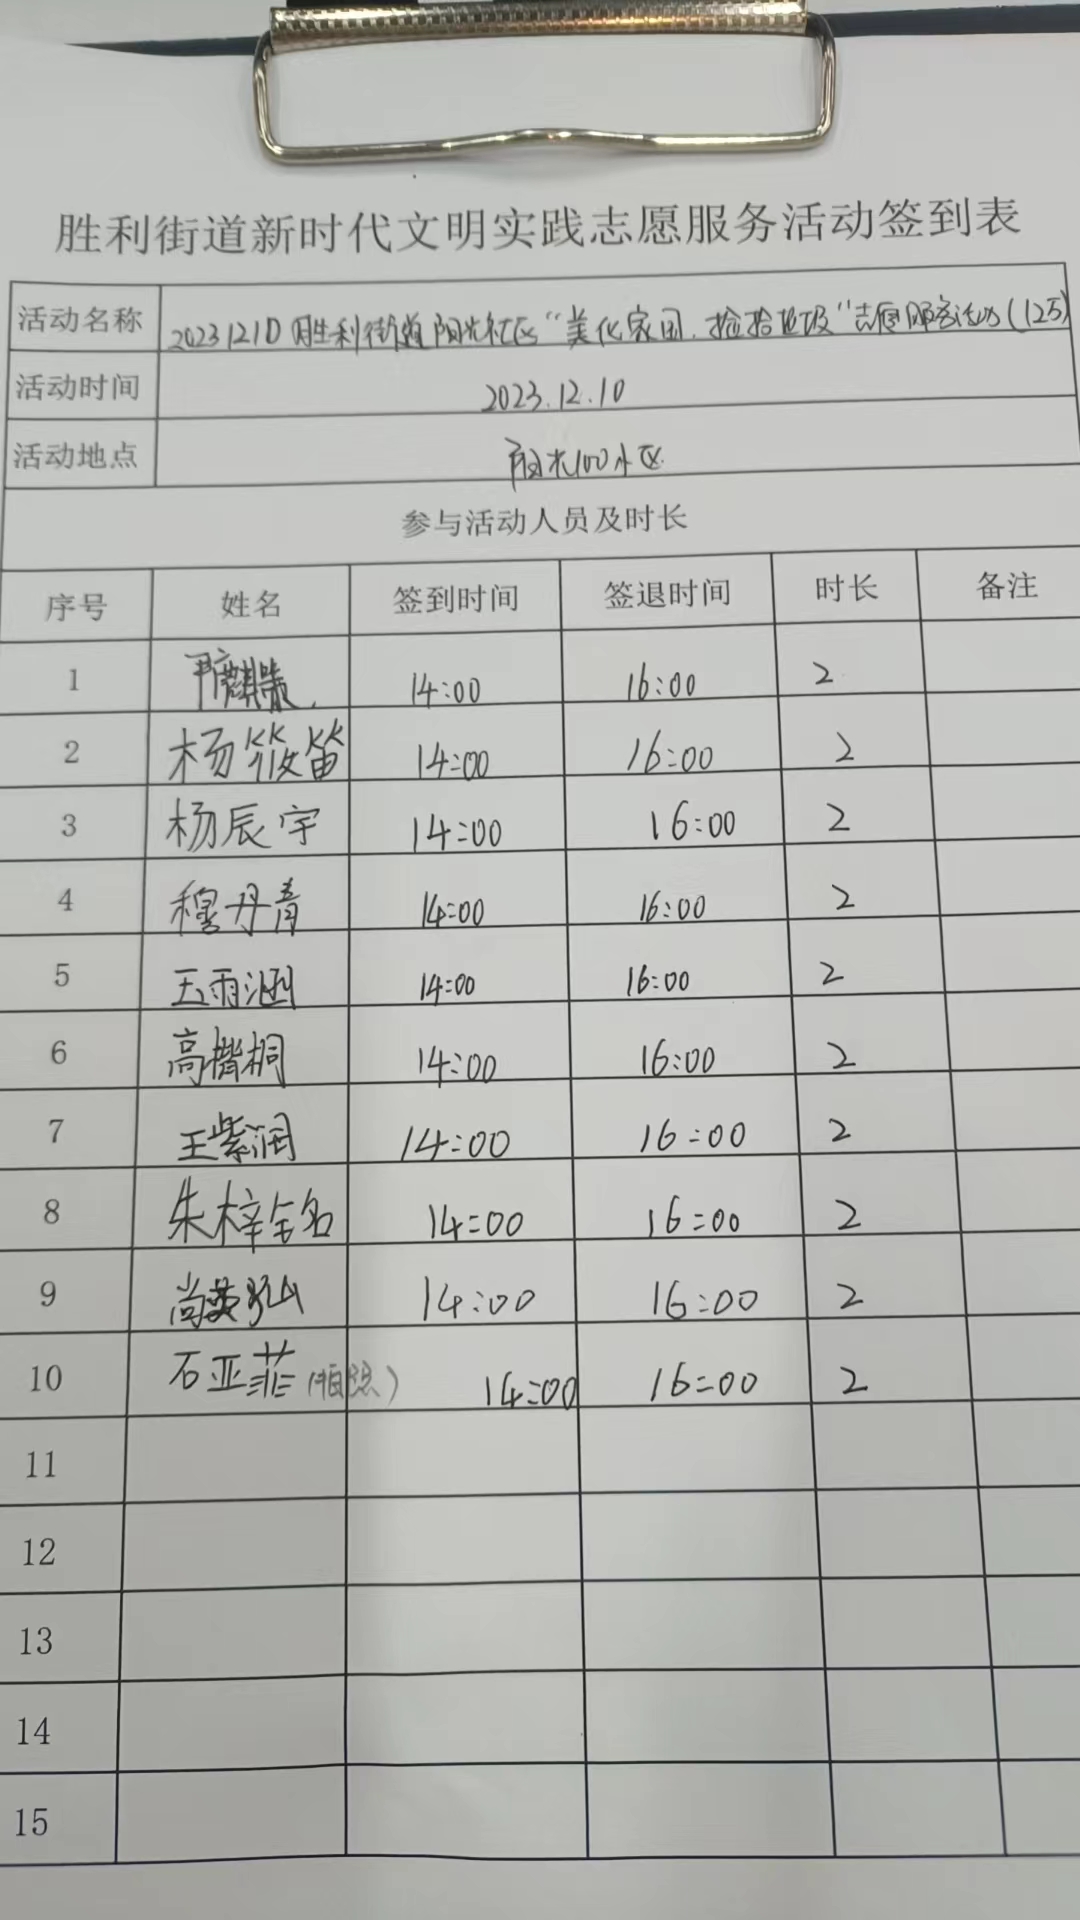 胜利街道新时代文明实践志愿服务活动签到表
活动名称 20231210胜利街道阳光社区“美化家园，捡拾垃圾”志愿服务活动(125)
活动时间 2023.12.10
活动地点 阳光100小区
参与活动人员及时长
序号 姓名 签到时间 签退时间 时长 备注
1 14:00 16:00 2
2 杨筱笛 14:00 16:00 2
3 杨辰宇 14:00 16:00 2
4 穆丹青 14:00 16:00 2
5 王雨涵 14:00 16:00 2
6 高 桐 14:00 16:00 2
7 王紫润 14:00 16:00 2
8 朱梓铭 14:00 16:00 2
9 尚 14:00 16:00 2
10 石亚菲(拍照) 14:00 16:00 2
11
12
13
14
15